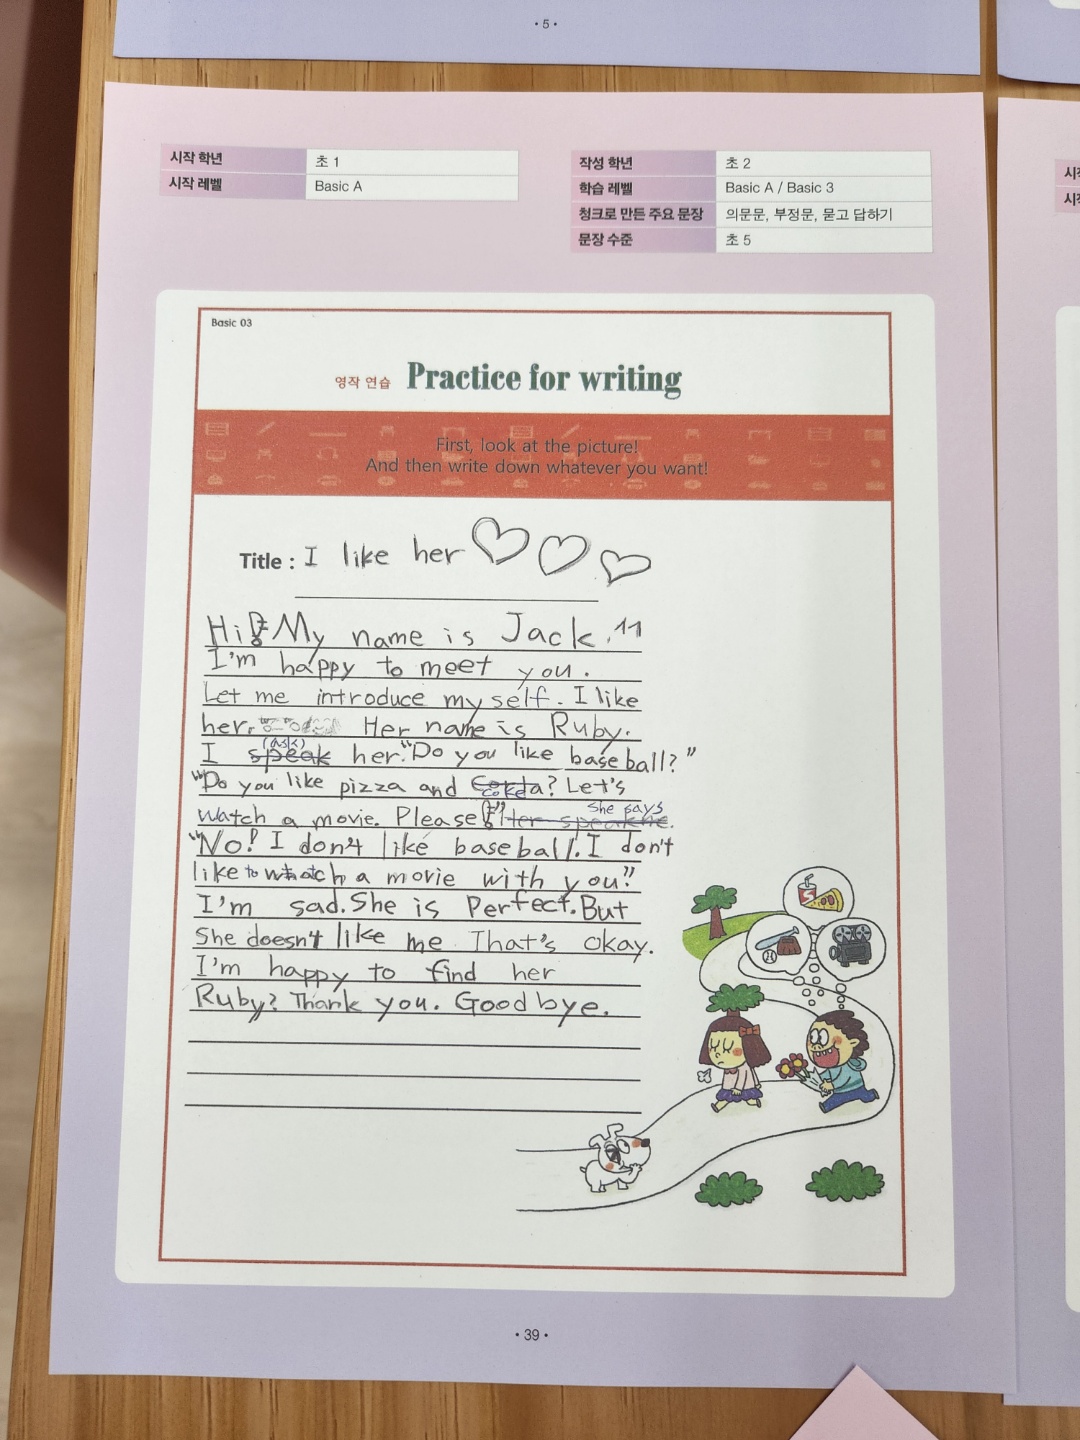 • 5 •
시작 학년 초 1
시작 레벨 Basic A
작성 학년 초 2
학습 레벨 Basic A / Basic 3
청크로 만든 주요 문장 의문문, 부정문, 묻고 답하기
문장 수준 초 5
Basic 03
영작 연습 Practice for writing
First, look at the picture!
And then write down whatever you want!
Title : I like her
Hi! My name is Jack.
I'm happy to meet you.
Let me introduce my self. I like
her. Her name is Ruby.
I speak (ask) her. "Do you like baseball?"
"Do you like pizza and coke? Let's
watch a movie. Please!" She says
"No! I don't like baseball. I don't
like to watch a movie with you."
I'm sad. She is Perfect. But
She doesn't like me That's okay.
I'm happy to find her
Ruby? Thank you. Good bye.
• 39 •